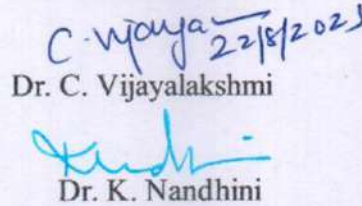 C. Vijaya
22/8/2023
Dr. C. Vijayalakshmi
Dr. K. Nandhini